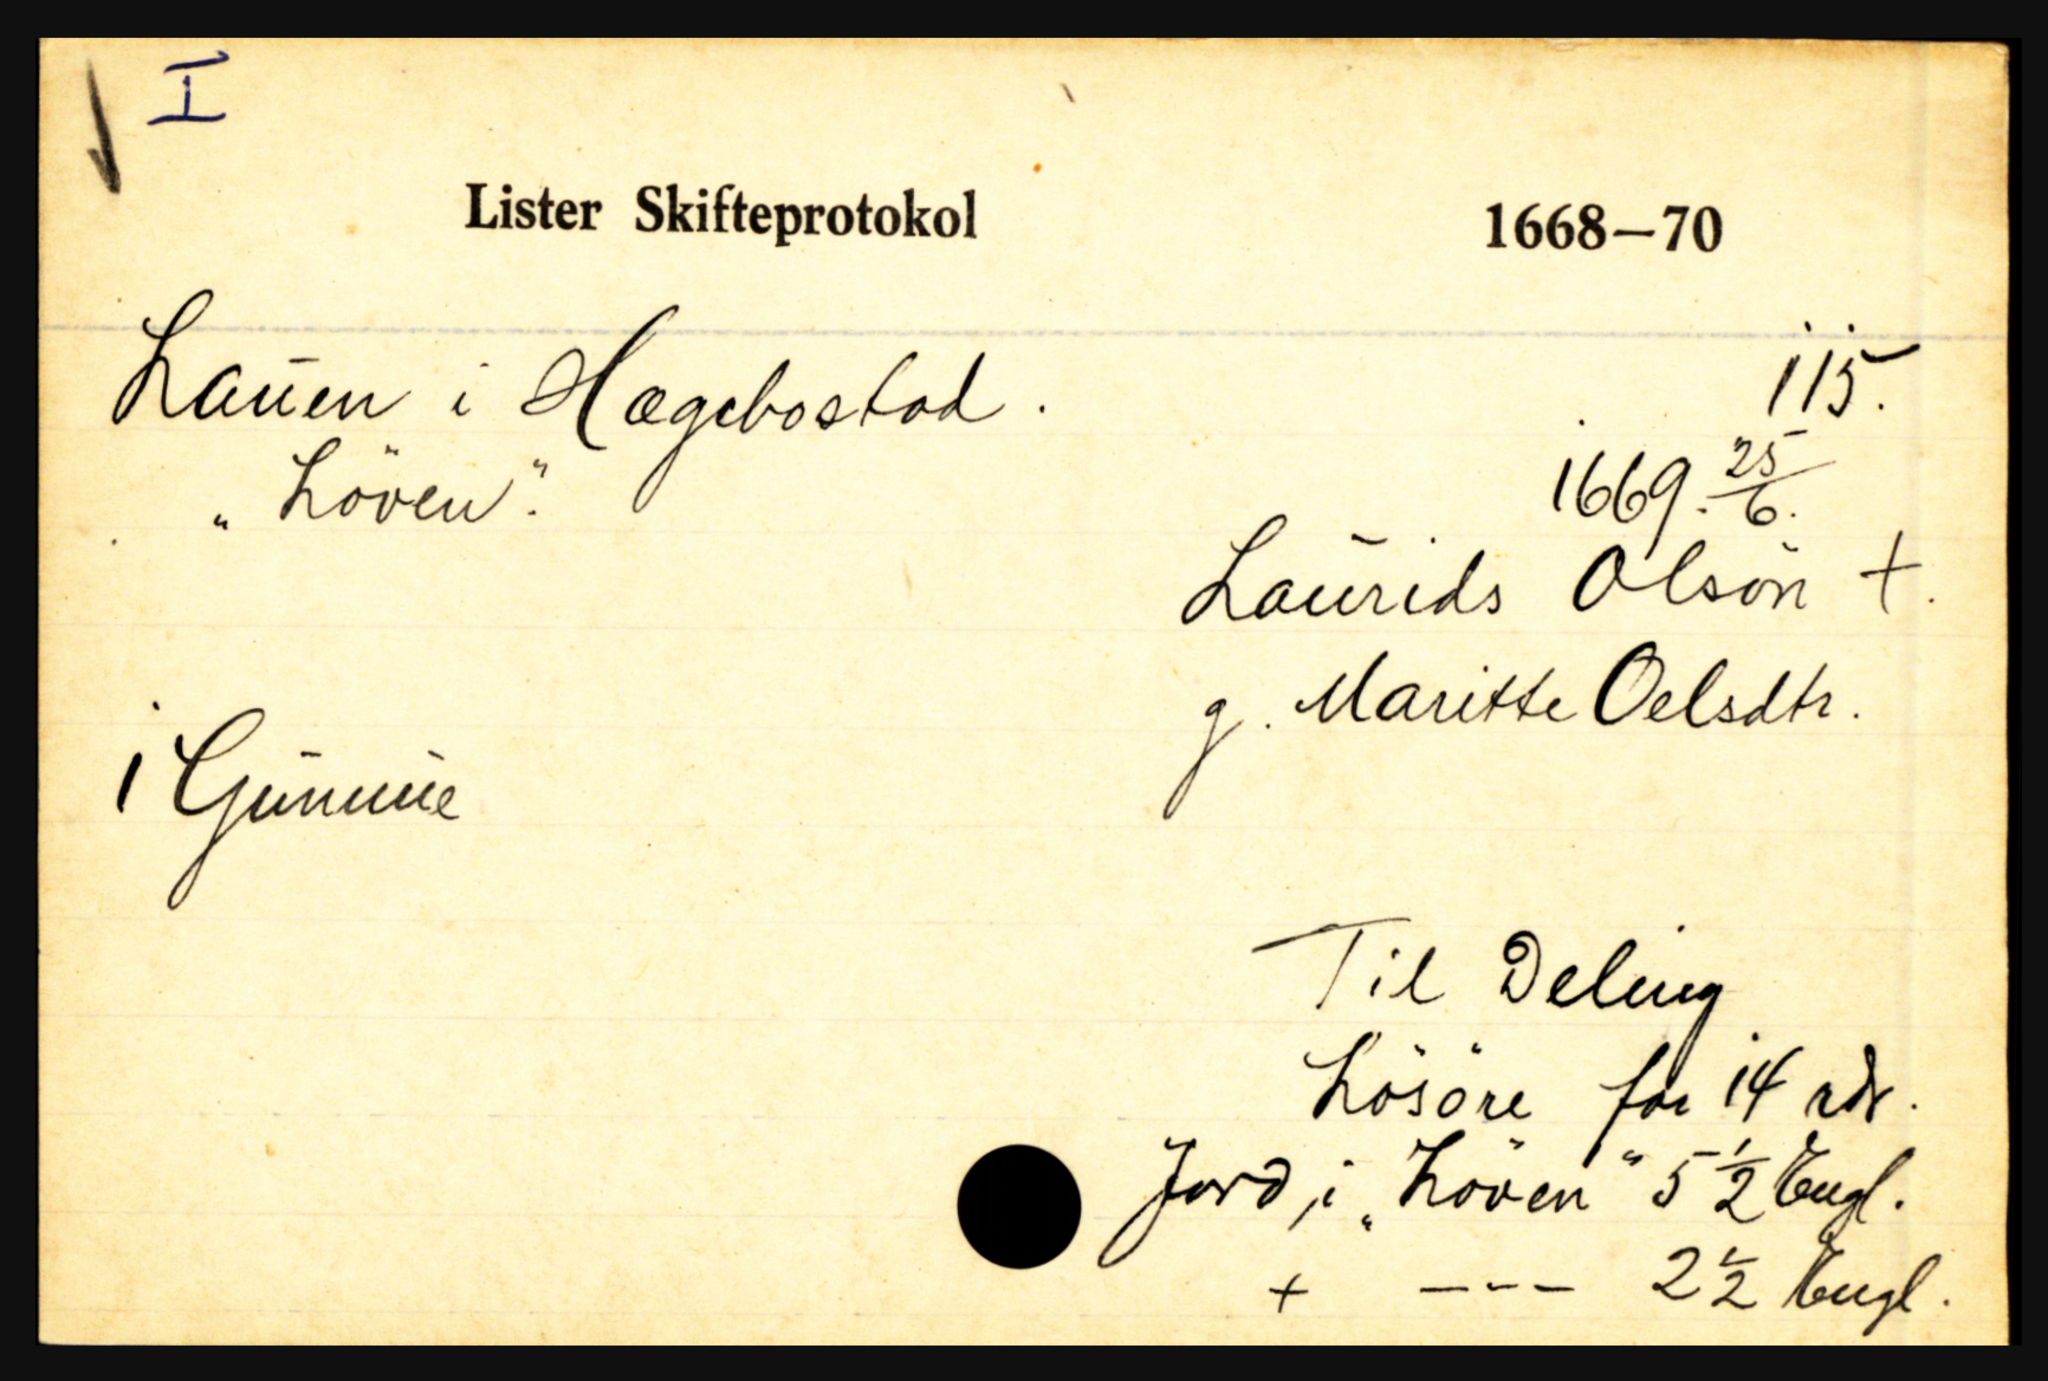 I
Lister Skifteprotokol 1668—70
Lauen i Hægebostad. 115.
„Löven". 1669. 25/6.
Laurids Olsön +.
g. Maritte Oelsdtr.
i Gunnüe
Til Deling
Lösöre for 14 rdr.
Jord i „Löven" 5 1/2 Engl.
+ --- 2 1/2 Engl.